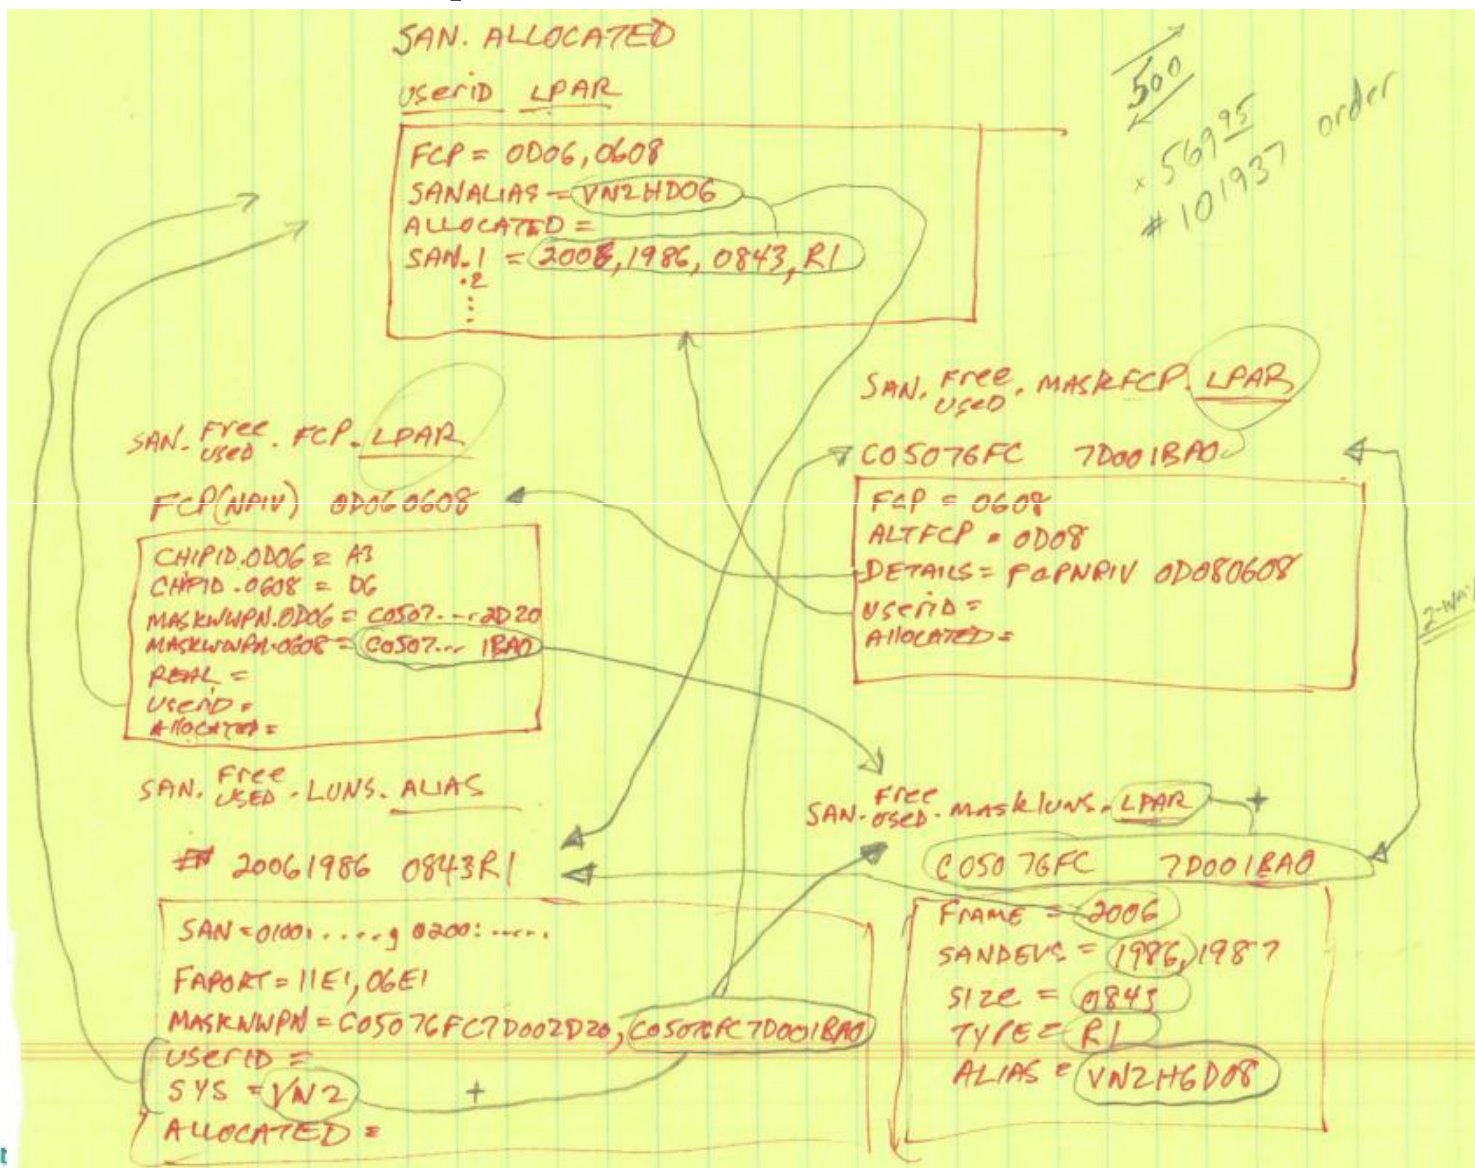 SAN. ALLOCATED
userid LPAR
FCP = 0D06, 0608
SANALIAS = VN2HD06
ALLOCATED =
SAN.1 = 2006, 1986, 0843, R1
.2
500
x 569 95
# 101937 order
SAN. Free USED . FCP. LPAR
FCP(NPIV) 0D060608
CHIPID.0D06 = A3
CHPID.0608 = D6
MASKWWPN.0D06 = C0507...2D20
MASKWWPN.0608 = C0507... 1BA0
REAL =
USERID =
Allocated =
SAN. Free USED . MASKFCP. LPAR
C05076FC 7D001BA0
FCP = 0608
ALTFCP = 0D08
DETAILS = FCPNPIV 0D080608
userid =
Allocated =
2-way
SAN. Free USED . LUNS. ALIAS
20061986 0843R1
SAN = 0100: ....., 0200: .....
FAPORT = 11E1, 06E1
MASKWWPN = C05076FC7D002D20, C05076FC7D001BA0
userID =
SYS = VN2 +
ALLOCATED =
SAN. Free USED . maskluns. LPAR +
C05076FC 7D001BA0
FRAME = 2006
SANDEVS = 1986, 1987
SIZE = 0843
TYPE = R1
ALIAS = VN2H6D08